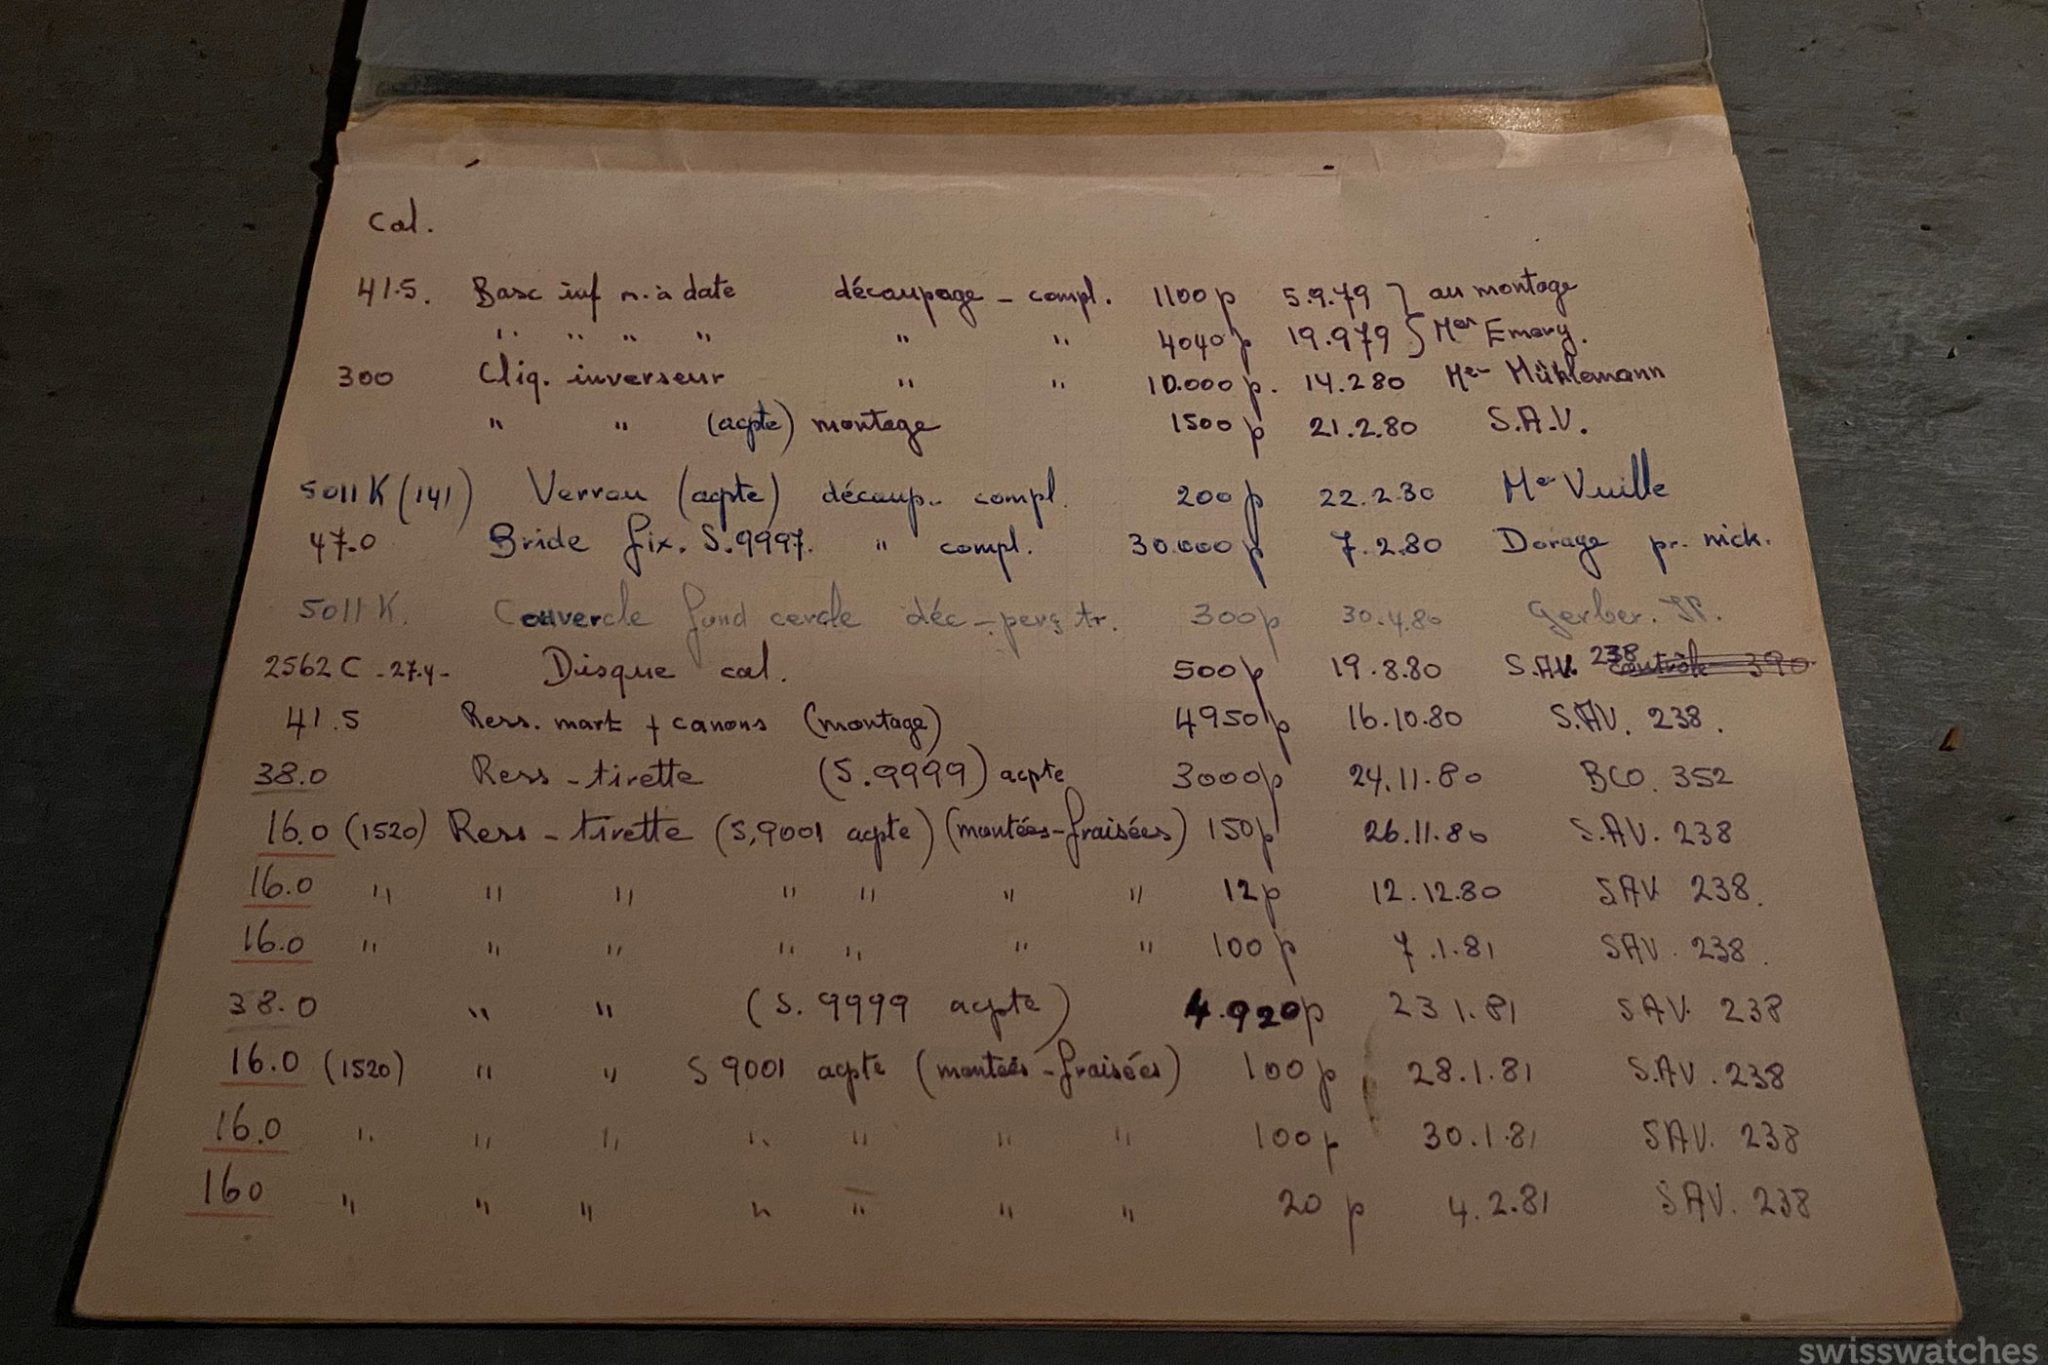 Cal.
41.5. Basc inf m. à date découpage - compl. 1100 p 5.9.79 } au montage
" " " " " " 4040 p 19.979 } Mer Emery.
300 Cliq. inverseur " " 10.000 p. 14.280 Me- Mühlemann
" " (acpte) montage 1500 p 21.2.80 S.A.V.
5011 K (141) Verrou (acpte) découp. compl. 200 p 22.2.80 Me Vuille
47.0 Bride fix. S.9997. " compl. 30.000 p 7.2.80 Dorage pr. nick.
5011 K. Couvercle fond cercle déc - perç tr. 300 p 30.4.80 Gerber. JP.
2562 C - 27.4 - Disque cal. 500 p 19.8.80 S.AV. 238 contrôle 390
41.5 Ress. mart + canons (montage) 4950 p 16.10.80 S.AV. 238.
38.0 Ress - tirette (S.9999) acpte 3000 p 24.11.80 BCO. 352
16.0 (1520) Ress - tirette (S,9001 acpte) (montées-fraisées) 150 p 26.11.80 S.AV. 238
16.0 " " " " " " " 12 p 12.12.80 SAV 238.
16.0 " " " " " " " 100 p 7.1.81 SAV. 238.
38.0 " " (S. 9999 acpte) 4.920 p 23 1.81 SAV. 238
16.0 (1520) " " S 9001 acpte (montées-fraisées) 100 p 28.1.81 S.AV. 238
16.0 " " " " " " " 100 p 30.1.81 SAV. 238
160 " " " " " " " 20 p 4.2.81 SAV. 238
swisswatches